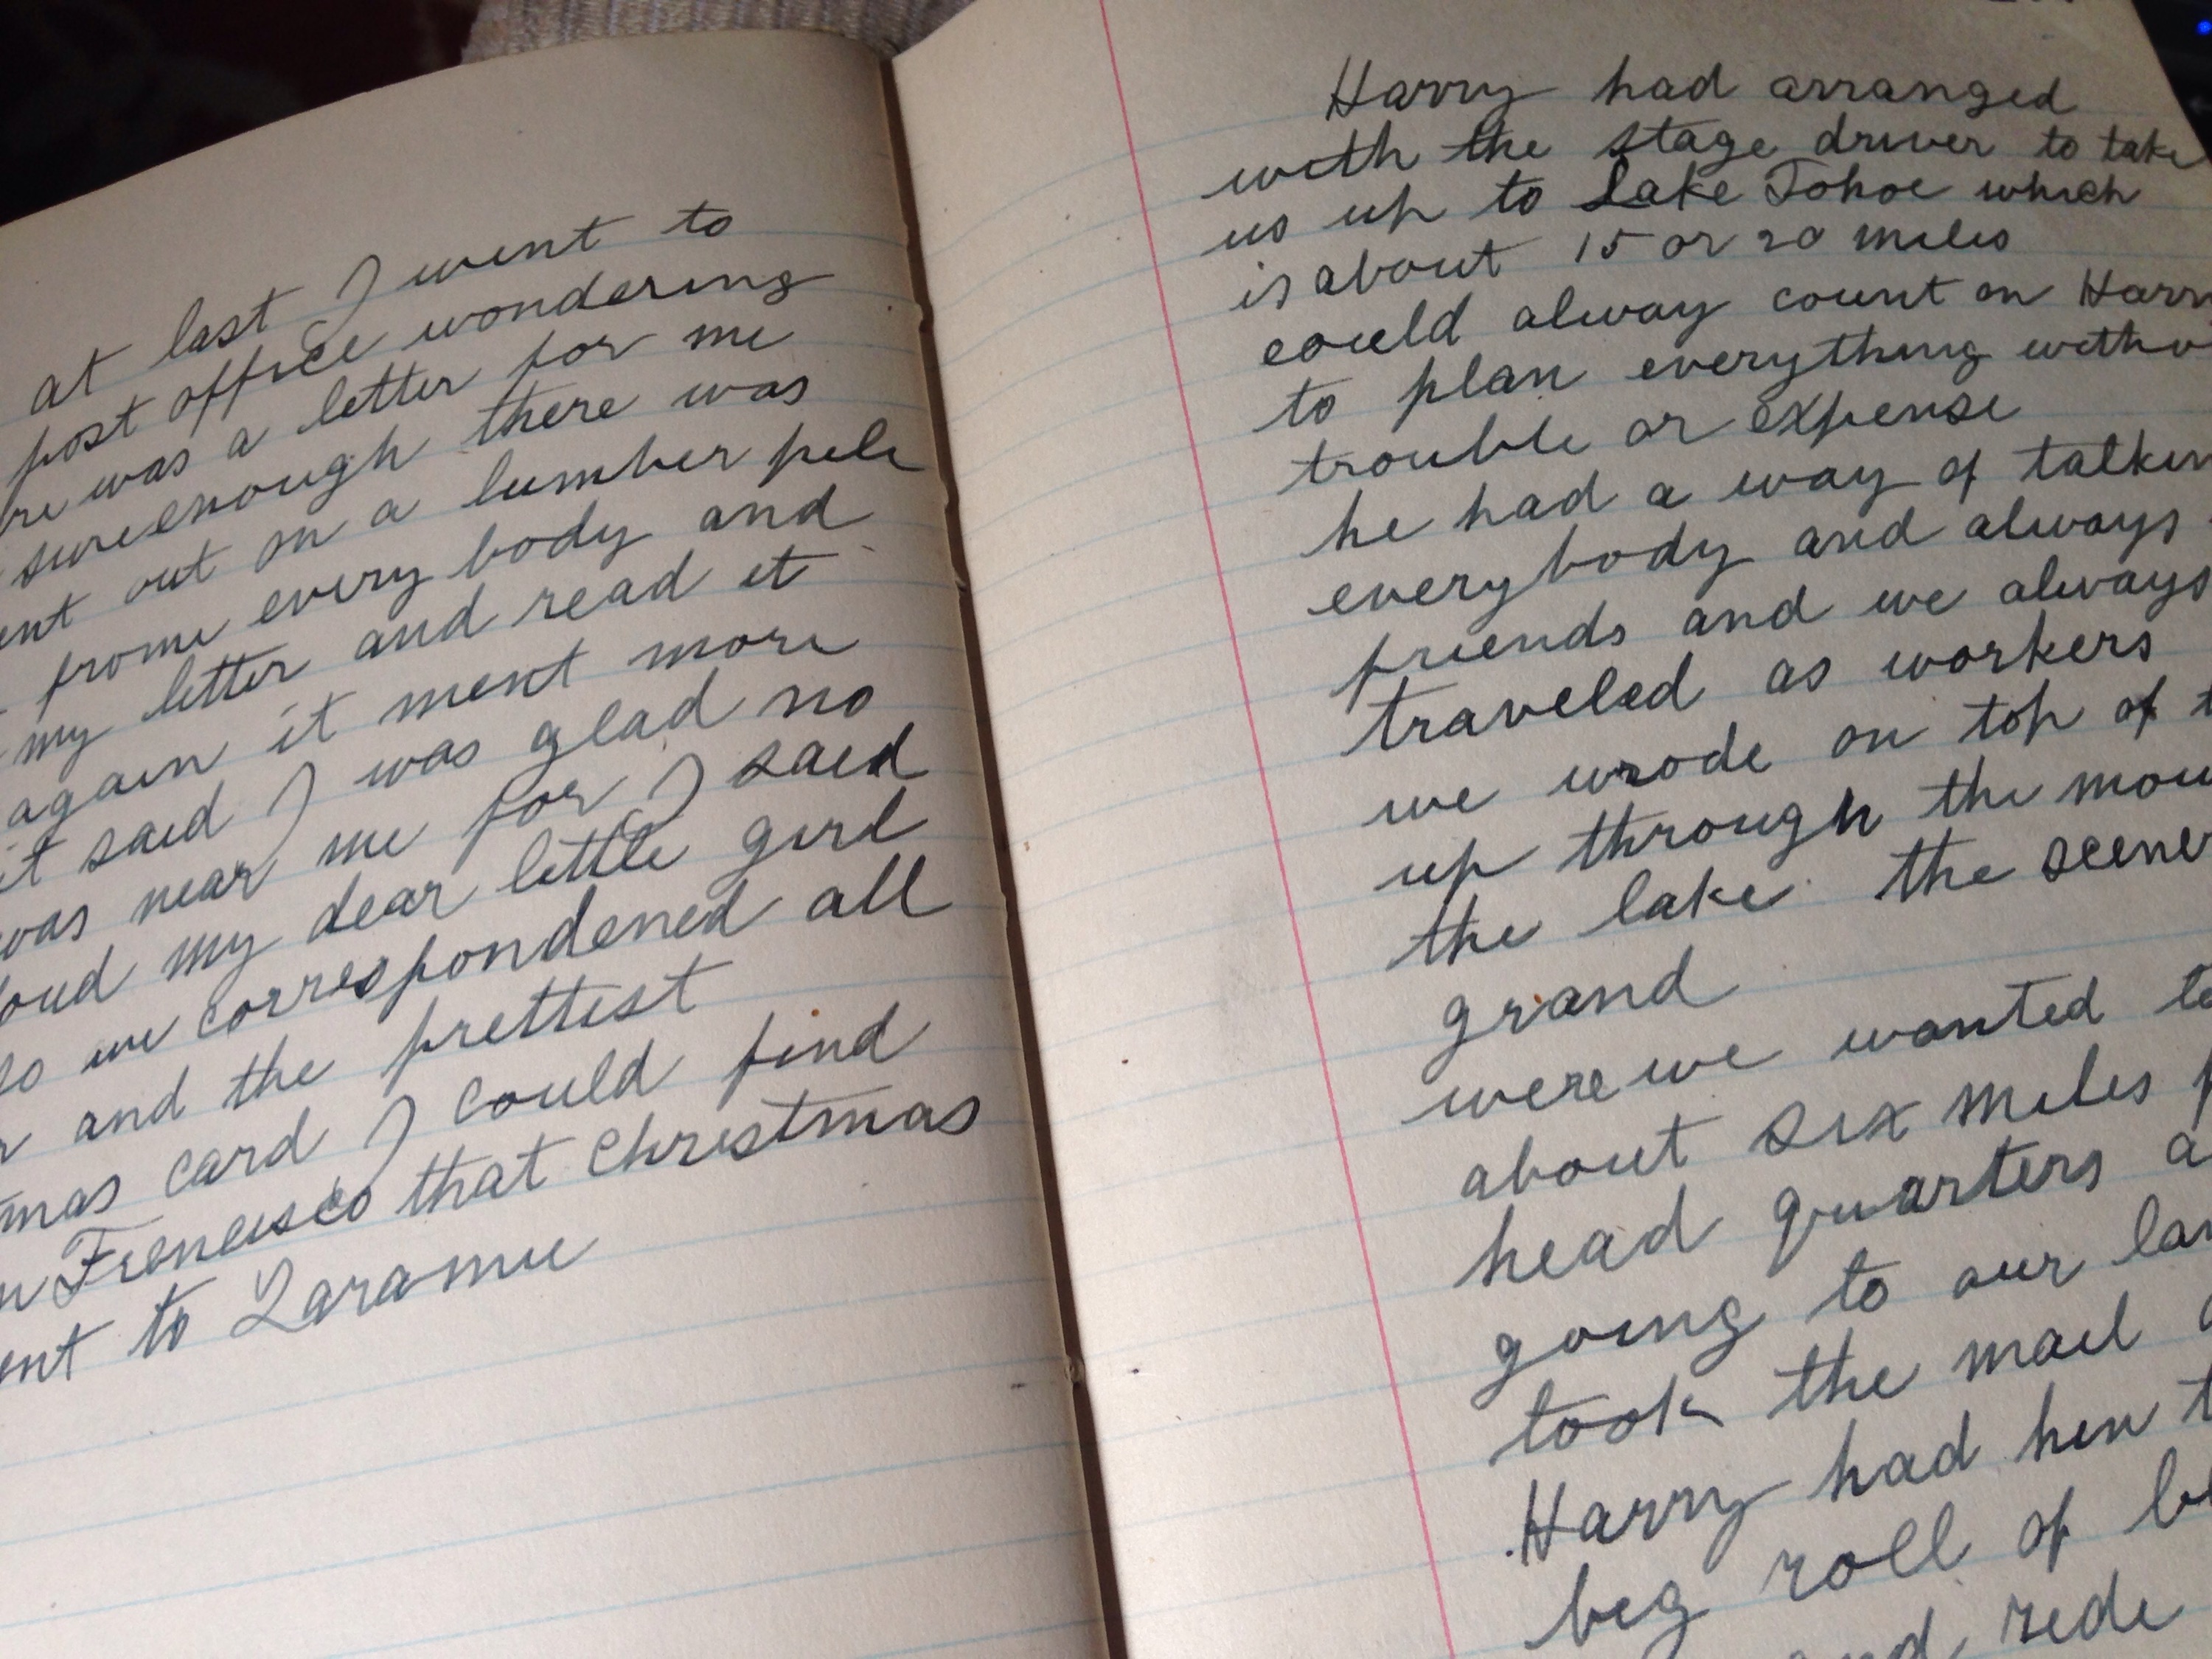 at last I went to
post office wondering
was a letter for me
sureenough there was
out on a lumber pile
frome every body and
my letter and read it
again it ment more
it said I was glad no
was near me for I said
my dear little girl
so we correspondened all
and the prettist
card I could find
Frencisco that Christmas
to Laramie
Harry had arranged
with the stage driver to take
us up to Lake Tohoe which
is about 15 or 20 miles
could alway count on
to plan everything
trouble or expense
he had a way of
everybody and always
friends and we always
traveled as workers
we wrode on top of
up through the
the lake the
grand
were we wanted
about six miles
head quarters
going to our
took the mail
Harry had him
big roll of
ride